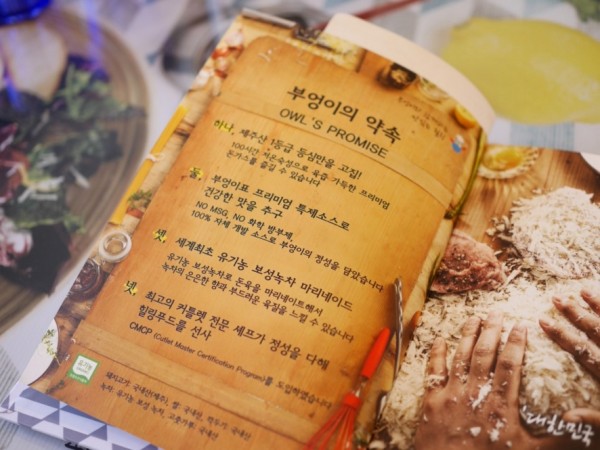 부엉이의 약속
OWL'S PROMISE
하나, 제주산 1등급 등심만을 고집!
100시간 저온숙성으로 육즙 가득한 프리미엄
돈가스를 즐길 수 있습니다
둘, 부엉이표 프리미엄 특제소스로
건강한 맛을 추구
NO MSG, NO 화학 방부제,
100% 자체 개발 소스로 부엉이의 정성을 담았습니다
셋, 세계최초 유기농 보성녹차 마리네이드
유기농 보성녹차로 돈육을 마리네이트해서
녹차의 은은한 향과 부드러운 육질을 느낄 수 있습니다
넷, 최고의 커틀렛 전문 셰프가 정성을 다해
힐링푸드를 선사
CMCP (Cutlet Master Certification Program)를 도입하였습니다
돼지고기: 국내산(제주), 쌀: 국내산, 깍두기: 국내산
녹차: 유기농 보성 녹차, 고춧가루: 국내산
대한민국